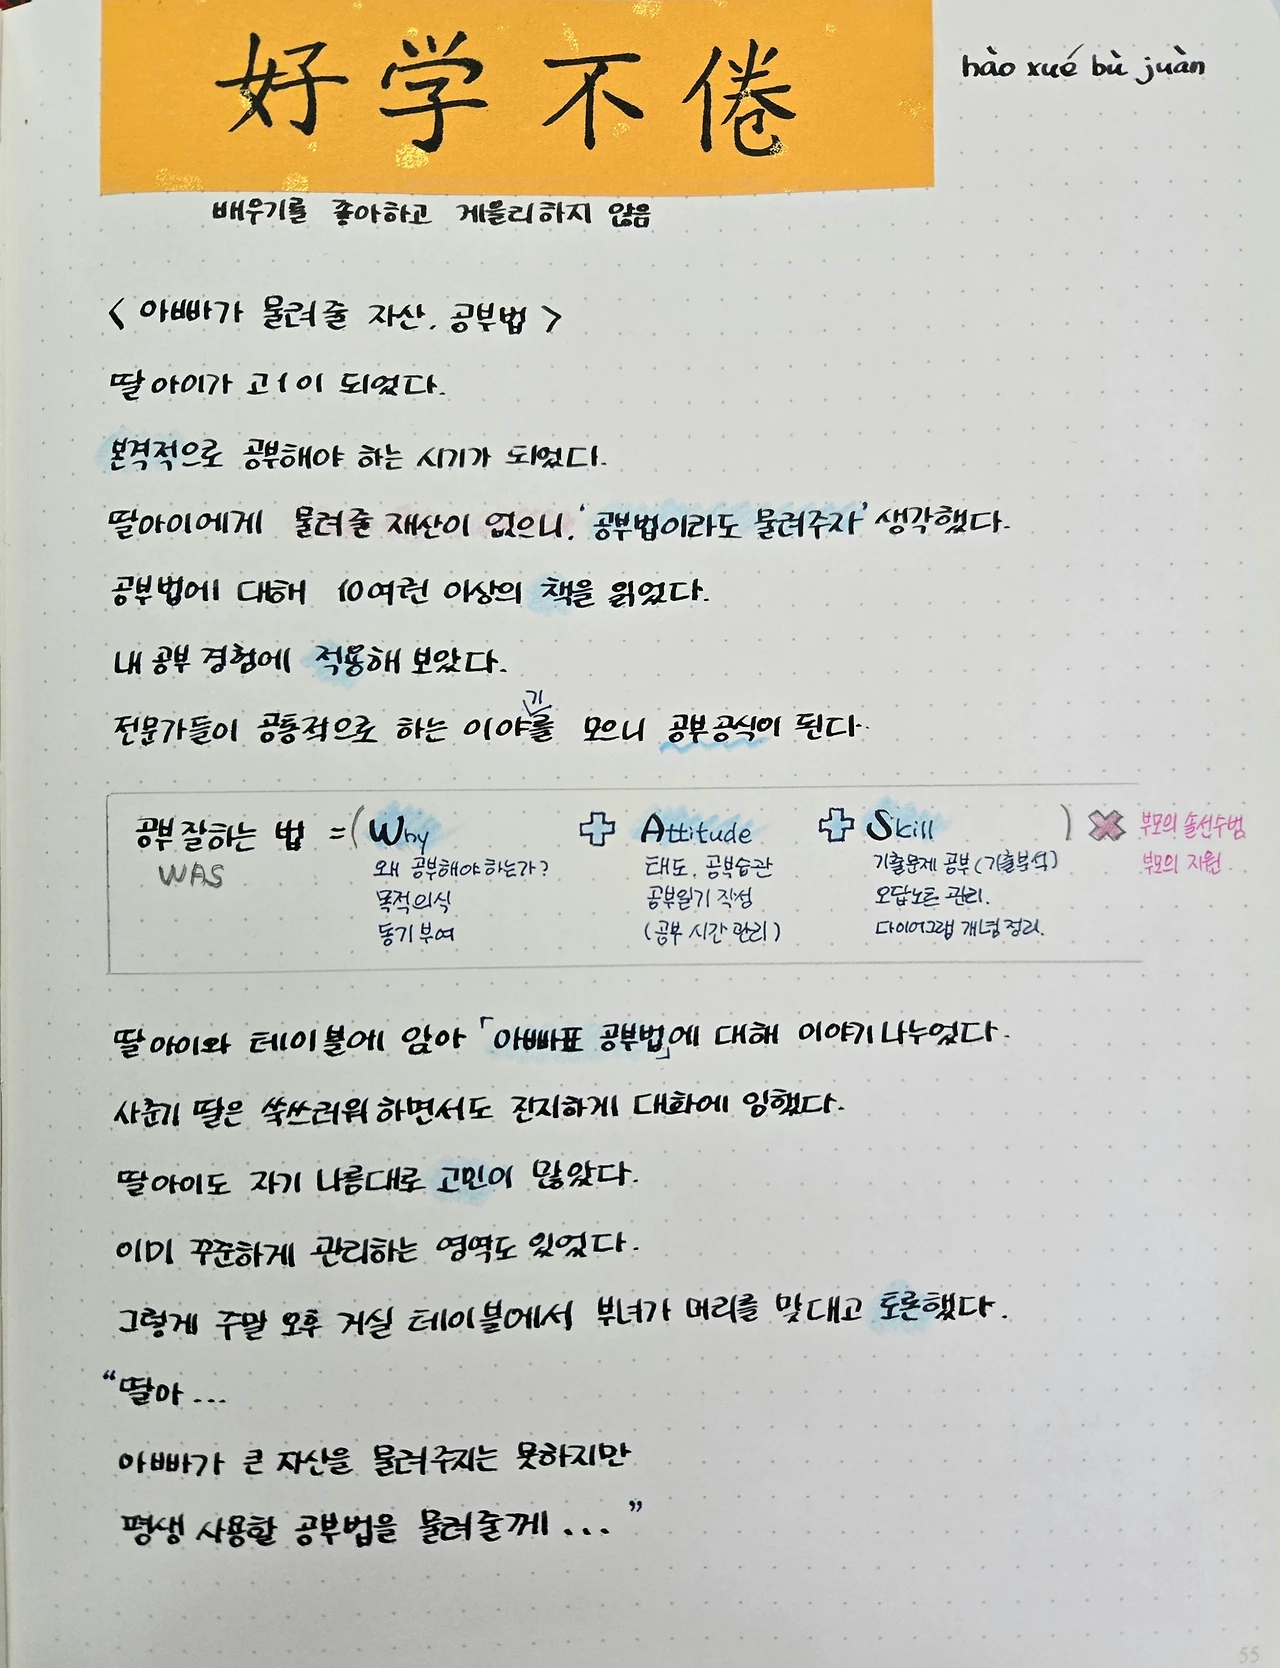 好学不倦
hào xué bù juàn
배우기를 좋아하고 게을리하지 않음
< 아빠가 물려줄 자산, 공부법 >
딸아이가 고1이 되었다.
본격적으로 공부해야 하는 시기가 되었다.
딸아이에게 물려줄 재산이 없으니, '공부법이라도 물려주자' 생각했다.
공부법에 대해 10여권 이상의 책을 읽었다.
내 공부 경험에 적용해 보았다.
전문가들이 공통적으로 하는 이야기를 모으니 공부공식이 된다.
공부 잘하는 법 = ( Why + Attitude + Skill ) × 부모의 솔선수범
WAS 왜 공부해야 하는가? 태도, 공부습관 기출문제 공부 (기출분석) 부모의 지원
목적의식 공부일기 작성 오답노트 관리.
동기 부여 (공부 시간 관리) 다이어그램 개념 정리.
딸아이와 테이블에 앉아 「아빠표 공부법」에 대해 이야기 나누었다.
사춘기 딸은 쑥쓰러워 하면서도 진지하게 대화에 임했다.
딸아이도 자기 나름대로 고민이 많았다.
이미 꾸준하게 관리하는 영역도 있었다.
그렇게 주말 오후 거실 테이블에서 부녀가 머리를 맞대고 토론했다.
"딸아...
아빠가 큰 자산을 물려주지는 못하지만
평생 사용할 공부법을 물려줄께..."
55